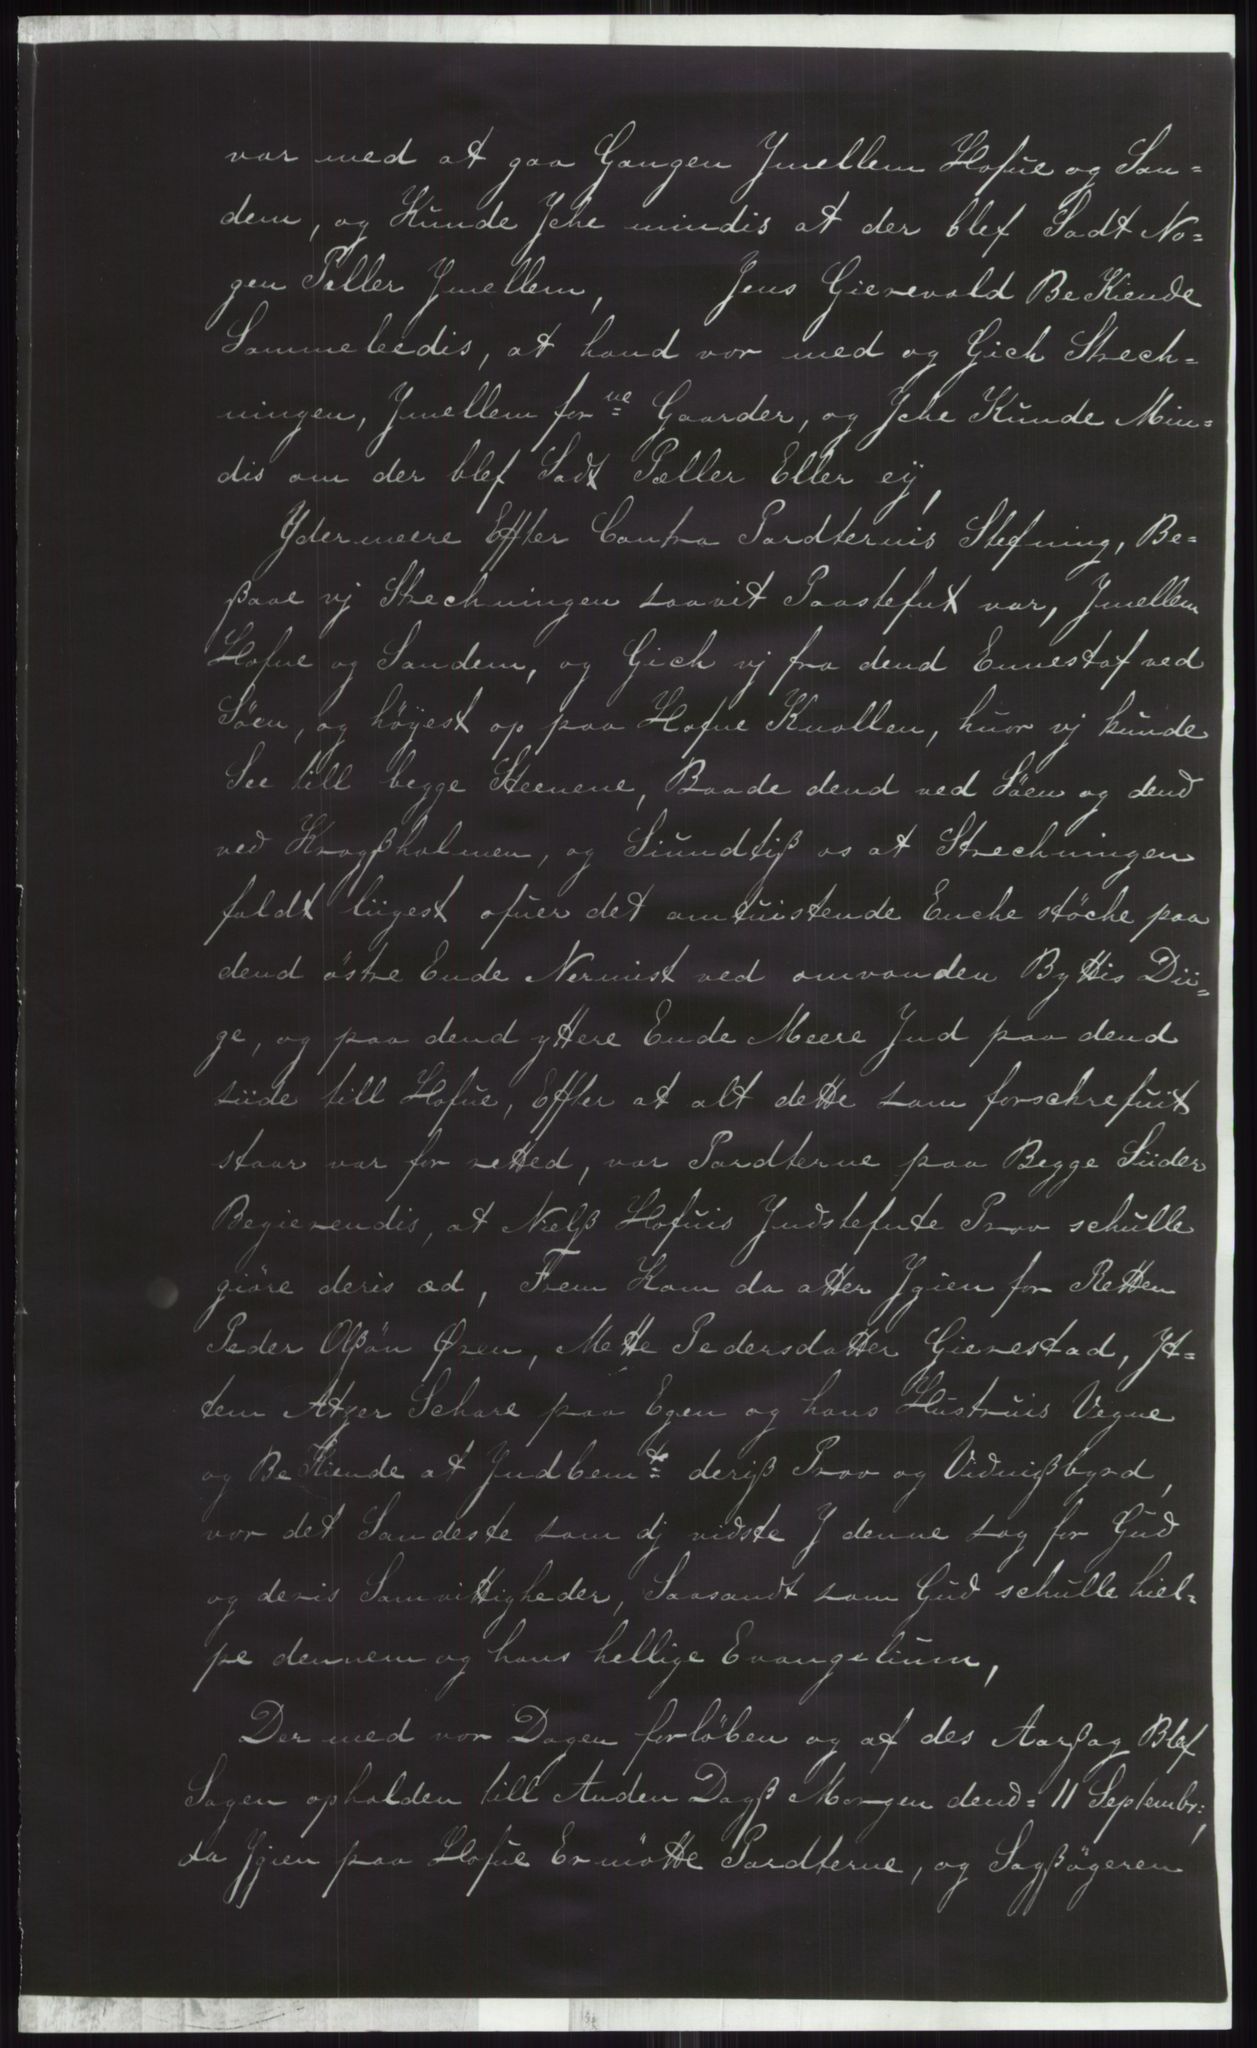 var med at gaa Gangen Jmellem Hofue og San=
dem, og Kunde Jche mindis at der blef Sadt No=
gen Pæller Jmellem, Jens Gierevald BeKiende
Sammeleedis, at hand var med og Gich Strech=
ningen, Jmellem forne Gaarder, og Jche Kunde Min=
dis om der blef Sadt Pæller Eller eÿ,
Ydermeere Effter Contra Pardternis Stefning, Be=
ßaae vj Strechningen saavit Paastefnt var, Jmellem
Hofue og Sandem, og Gich vj fra dend Ennestaf ved
Söen, og höÿest op paa Hofue Knallen, huor vj kunde
See till begge Steenene, Baade dend ved Söen og dend
ved Kragßholmen, og Siundtiß os at Strechningen
faldt liigest ofuer det omtuistende Enche stöche paa
dend östre Ende Nermist ved omvanden Byttis Dii=
ge, og paa dend yttere Ende Meere Jnd paa dend
siide till Hofue, Effter at alt dette som forschrefuit
staar var for retted, var Pardterne paa Begge Siider
Begierendis, at Nielß Hofuis Jndstefnte Prov schulle
giöre deris æd, Frem Kom da atter Jgien for Retten
Peder Olßön Øren, Mette Pedersdatter Gierestad, Jt=
tem Atzer Schare paa Egen og hans Hustruis Vegne
og BeKiende at Jndbemte deriß Prov og Vidnißbyrd,
var det Sandeste som dj vidste J denne sag for Gud
og deris Samvittigheder, Saasandt som Gud schulle hiel=
pe dennem og hans hellige Evangelium,
Der med var Dagen forlöben og af des Aarßag Blef
Sagen opholden till Anden Dagß Morgen dend= 11 Septembr:,
da Jgien paa Hofue Er mötte Pardterne, og Sagßögeren